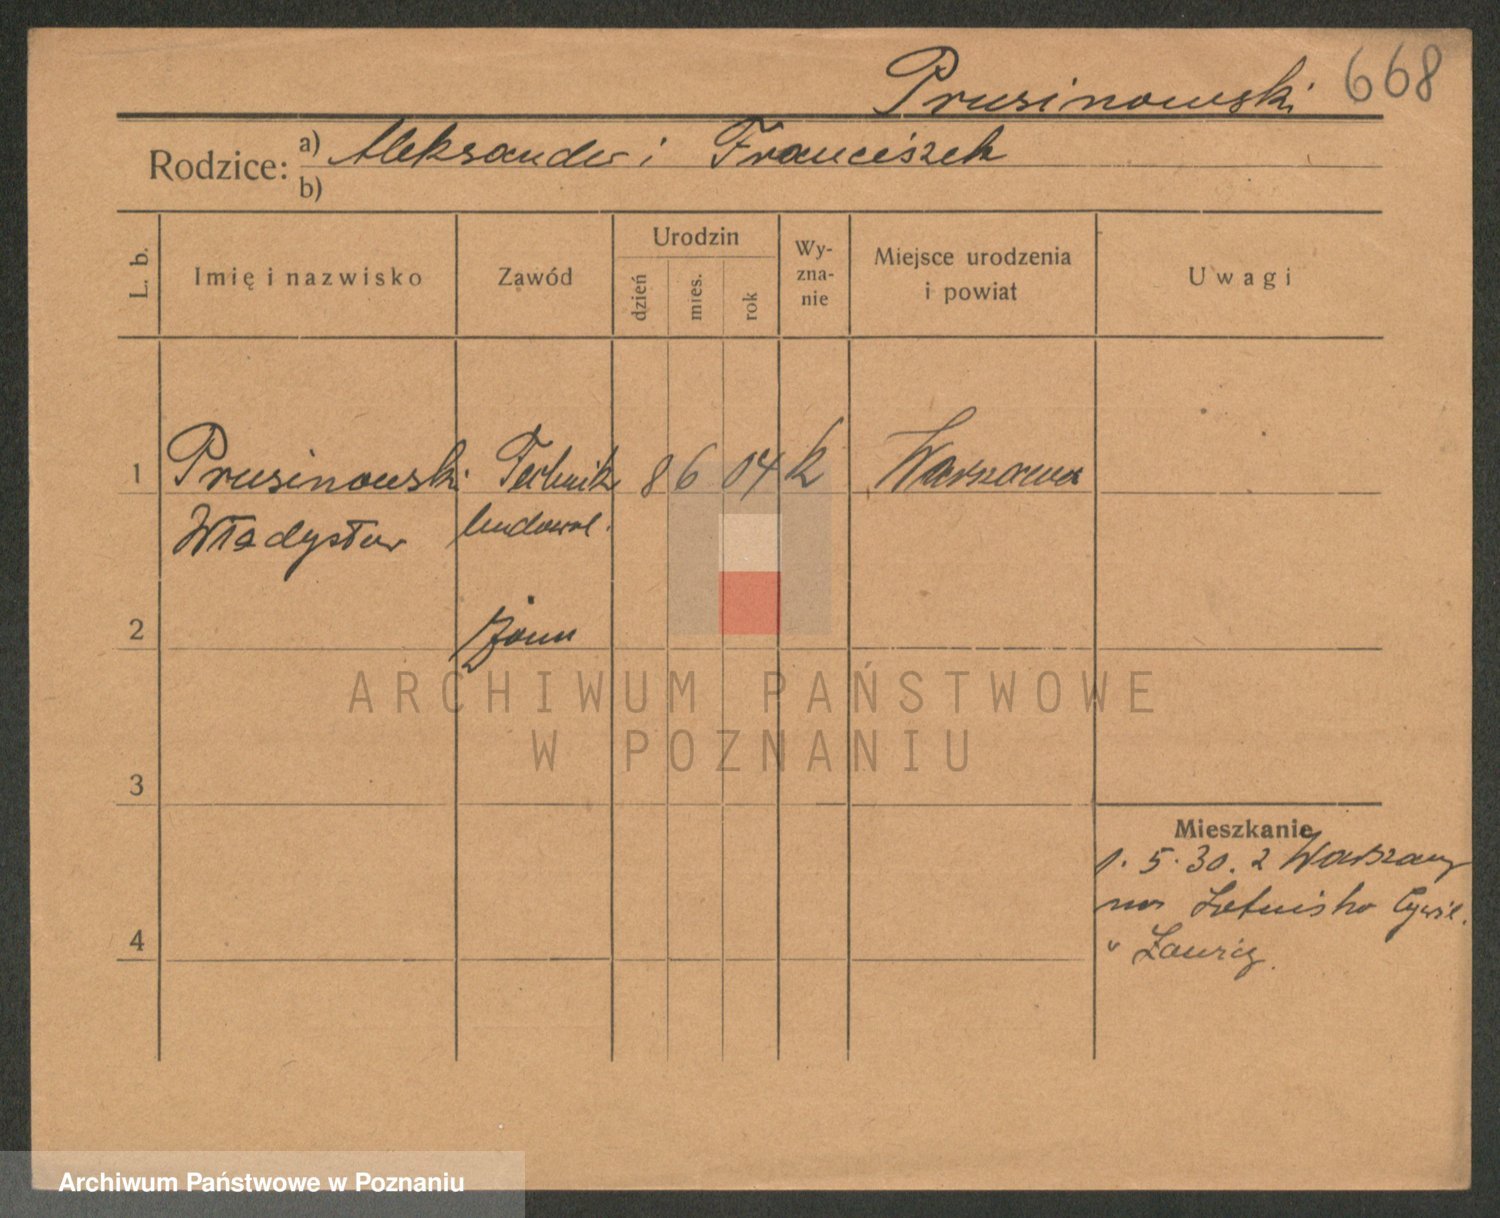 Prusinowski 668
Rodzice: a) Aleksander i Franciszek
b)
L. b. Imię i nazwisko Zawód Urodzin dzień mies. rok Wyznanie Miejsce urodzenia i powiat Uwagi
1 Prusinowski Technik 8 6 04 k Warszawa
Władysław budowl.
2
3
Mieszkanie
1. 5. 30. z Warszawy
Lotnisko Cywil.
4
" Ławicy.
ARCHIWUM PAŃSTWOWE
W POZNANIU
Archiwum Państwowe w Poznaniu